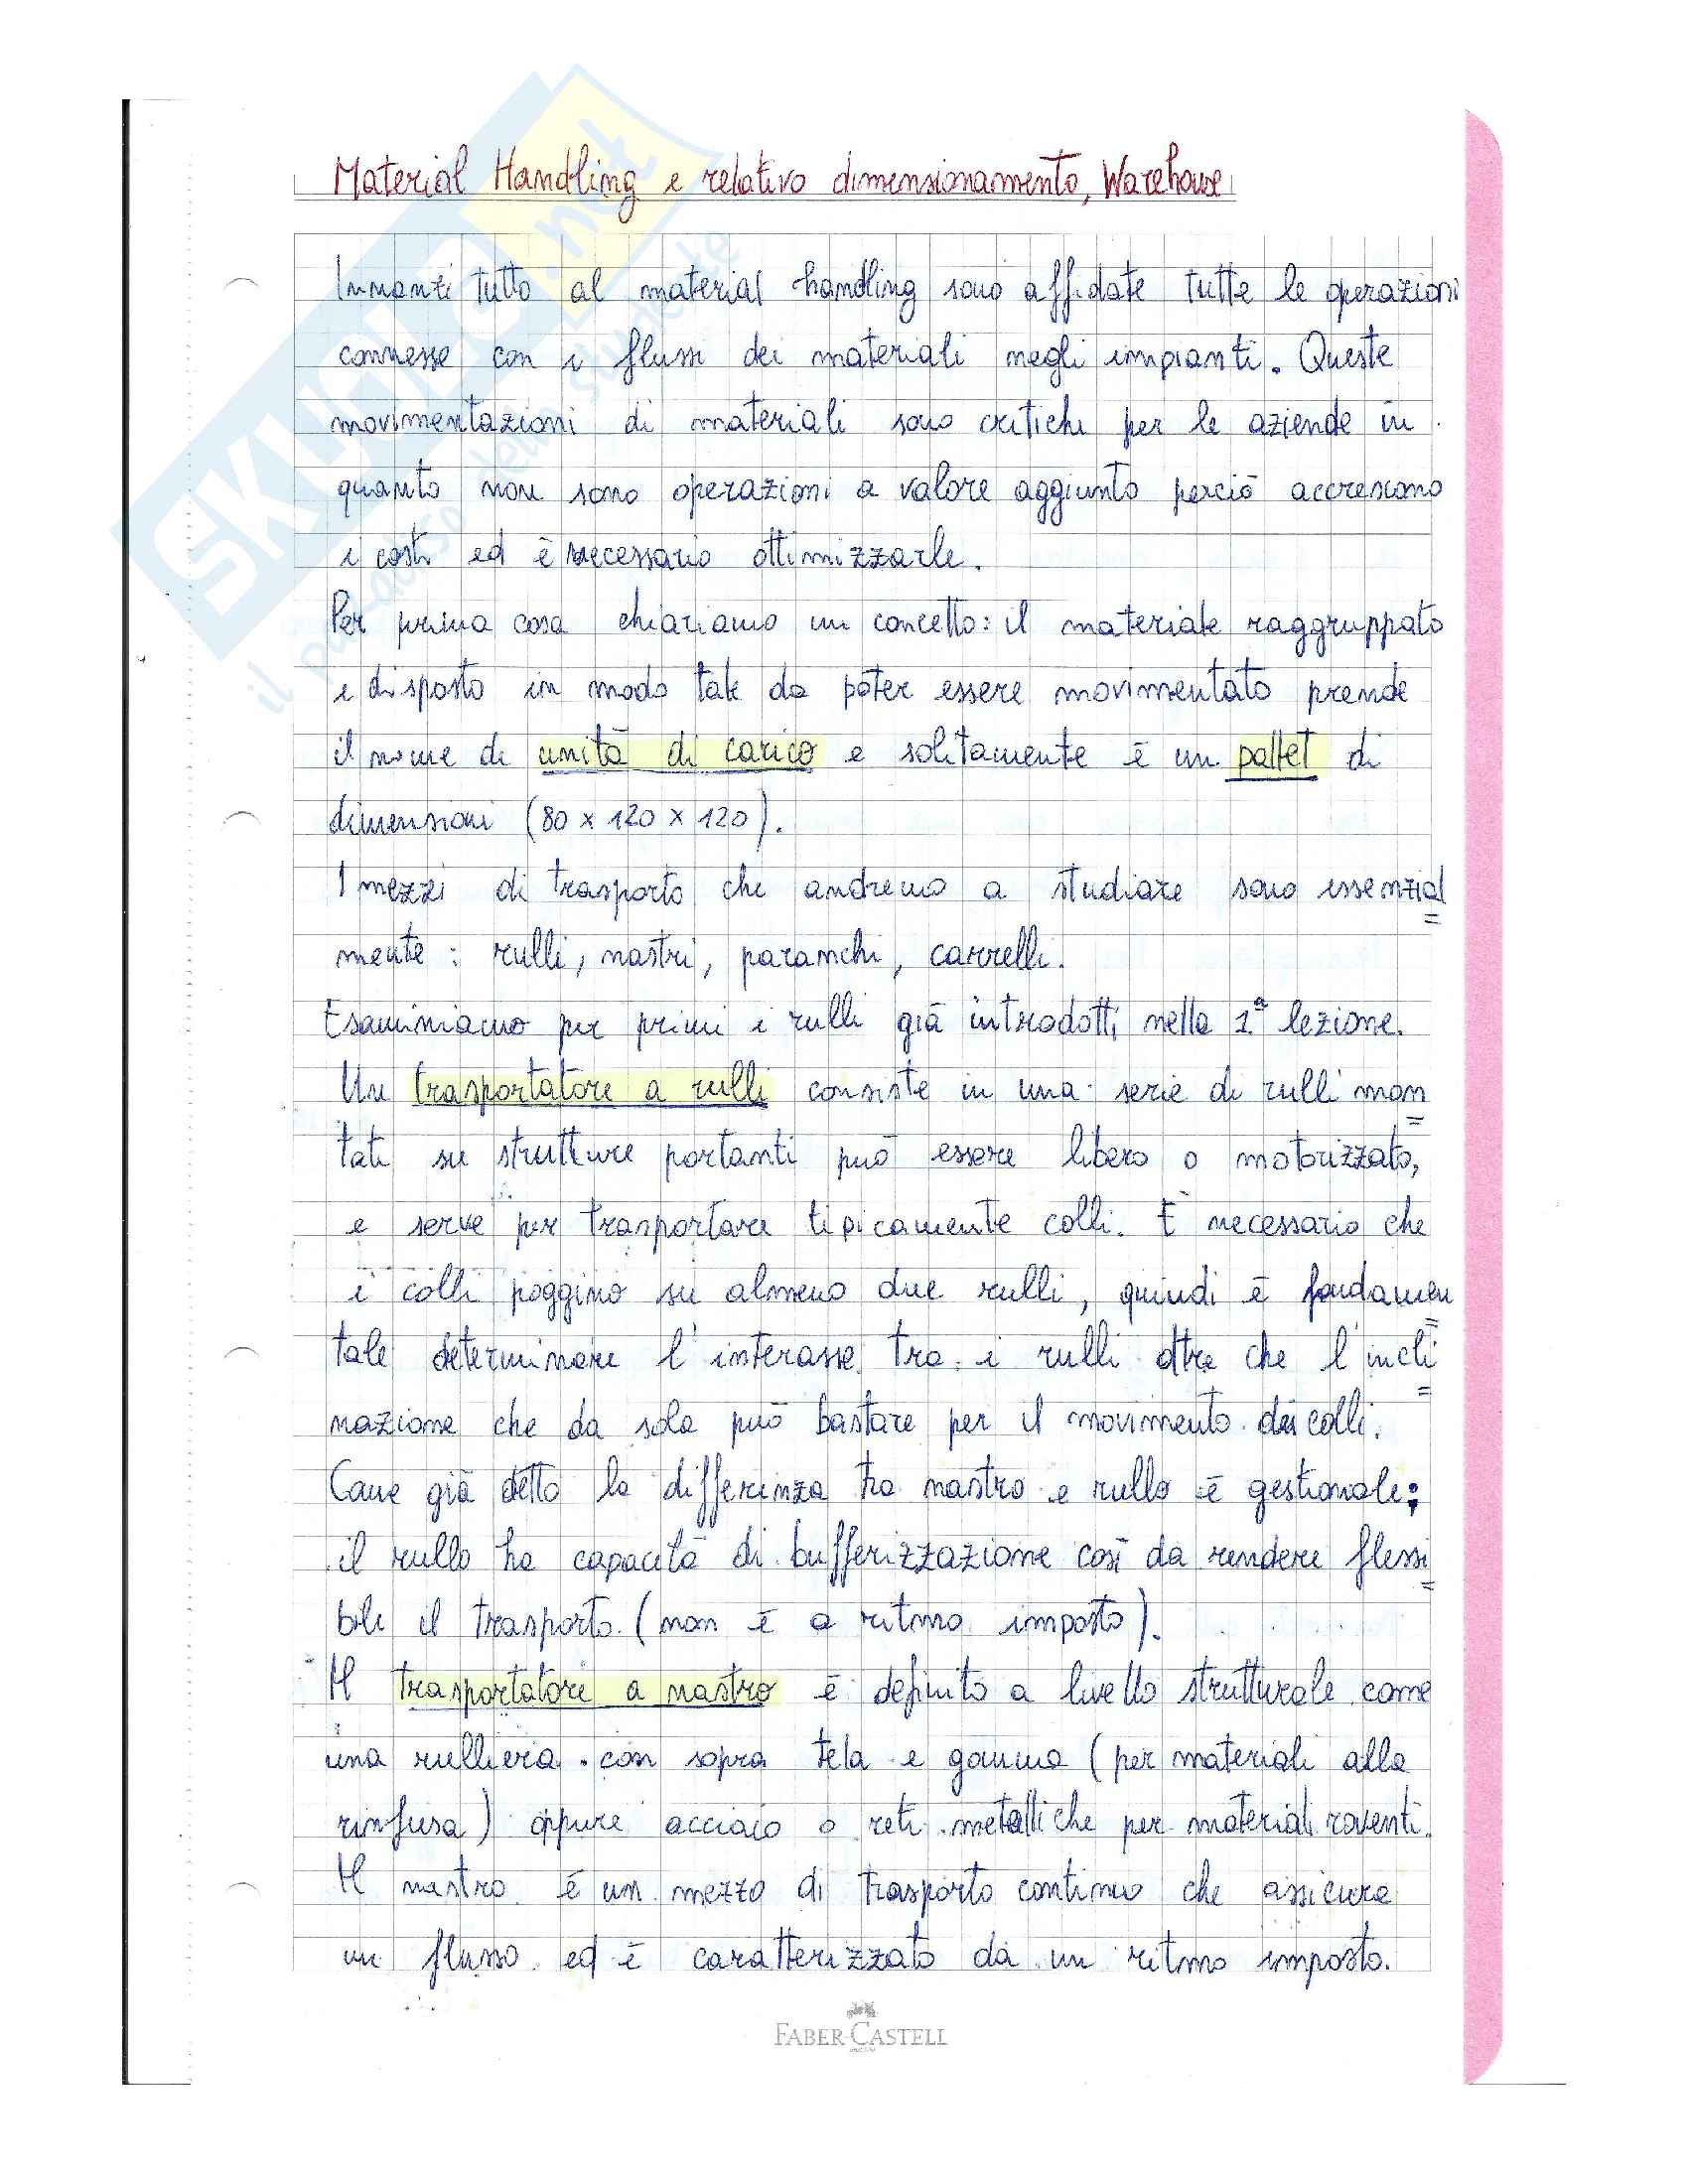 Material Handling e relativo dimensionamento, Warehouse
Innanzi tutto al material handling sono affidate tutte le operazioni
connesse con i flussi dei materiali negli impianti. Queste
movimentazioni di materiali sono critiche per le aziende in
quanto non sono operazioni a valore aggiunto perciò accrescono
i costi ed è necessario ottimizzarle.
Per prima cosa chiariamo un concetto: il materiale raggruppato
e disposto in modo tale da poter essere movimentato prende
il nome di unità di carico e solitamente è un pallet di
dimensioni (80 x 120 x 120).
I mezzi di trasporto che andremo a studiare sono essenzial=
mente: rulli, nastri, paranchi, carrelli.
Esaminiamo per primi i rulli già introdotti nella 1ª lezione.
Un trasportatore a rulli consiste in una serie di rulli mon=
tati su strutture portanti può essere libero o motorizzato,
e serve per trasportare tipicamente colli. È necessario che
i colli poggino su almeno due rulli, quindi è fondamen=
tale determinare l'interasse tra i rulli oltre che l'incli=
nazione che da sola può bastare per il movimento dei colli.
Come già detto la differenza tra nastro e rullo è gestionale;
il rullo ha capacità di bufferizzazione così da rendere flessi=
bile il trasporto (non è a ritmo imposto).
Il trasportatore a nastro è definito a livello strutturale come
una rulliera con sopra tela e gomma (per materiali alla
rinfusa) oppure acciaio o reti metalliche per materiali roventi.
Il nastro è un mezzo di trasporto continuo che assicura
un flusso ed è caratterizzato da un ritmo imposto.
FABER-CASTELL
SKUOLA.net
il paradiso dello studente